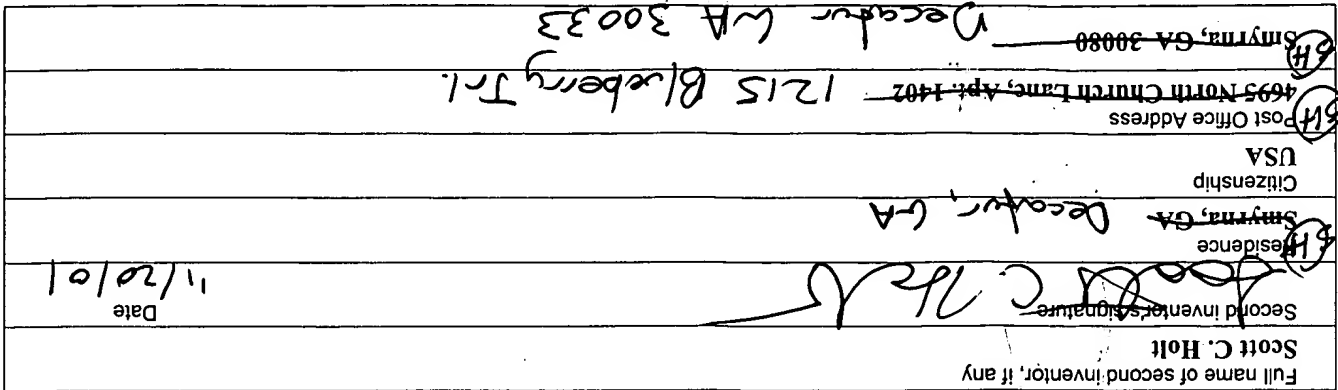 Full name of second inventor, if any
Scott C. Holt
Second inventor's signature Scott C. Holt
Date
11/20/01
Residence
SH Smyrna, GA Decatur, GA
Citizenship
USA
Post Office Address
SH 4695 North Church Lane, Apt. 1402 1215 Blueberry Trl.
SH Smyrna, GA 30080 Decatur GA 30033